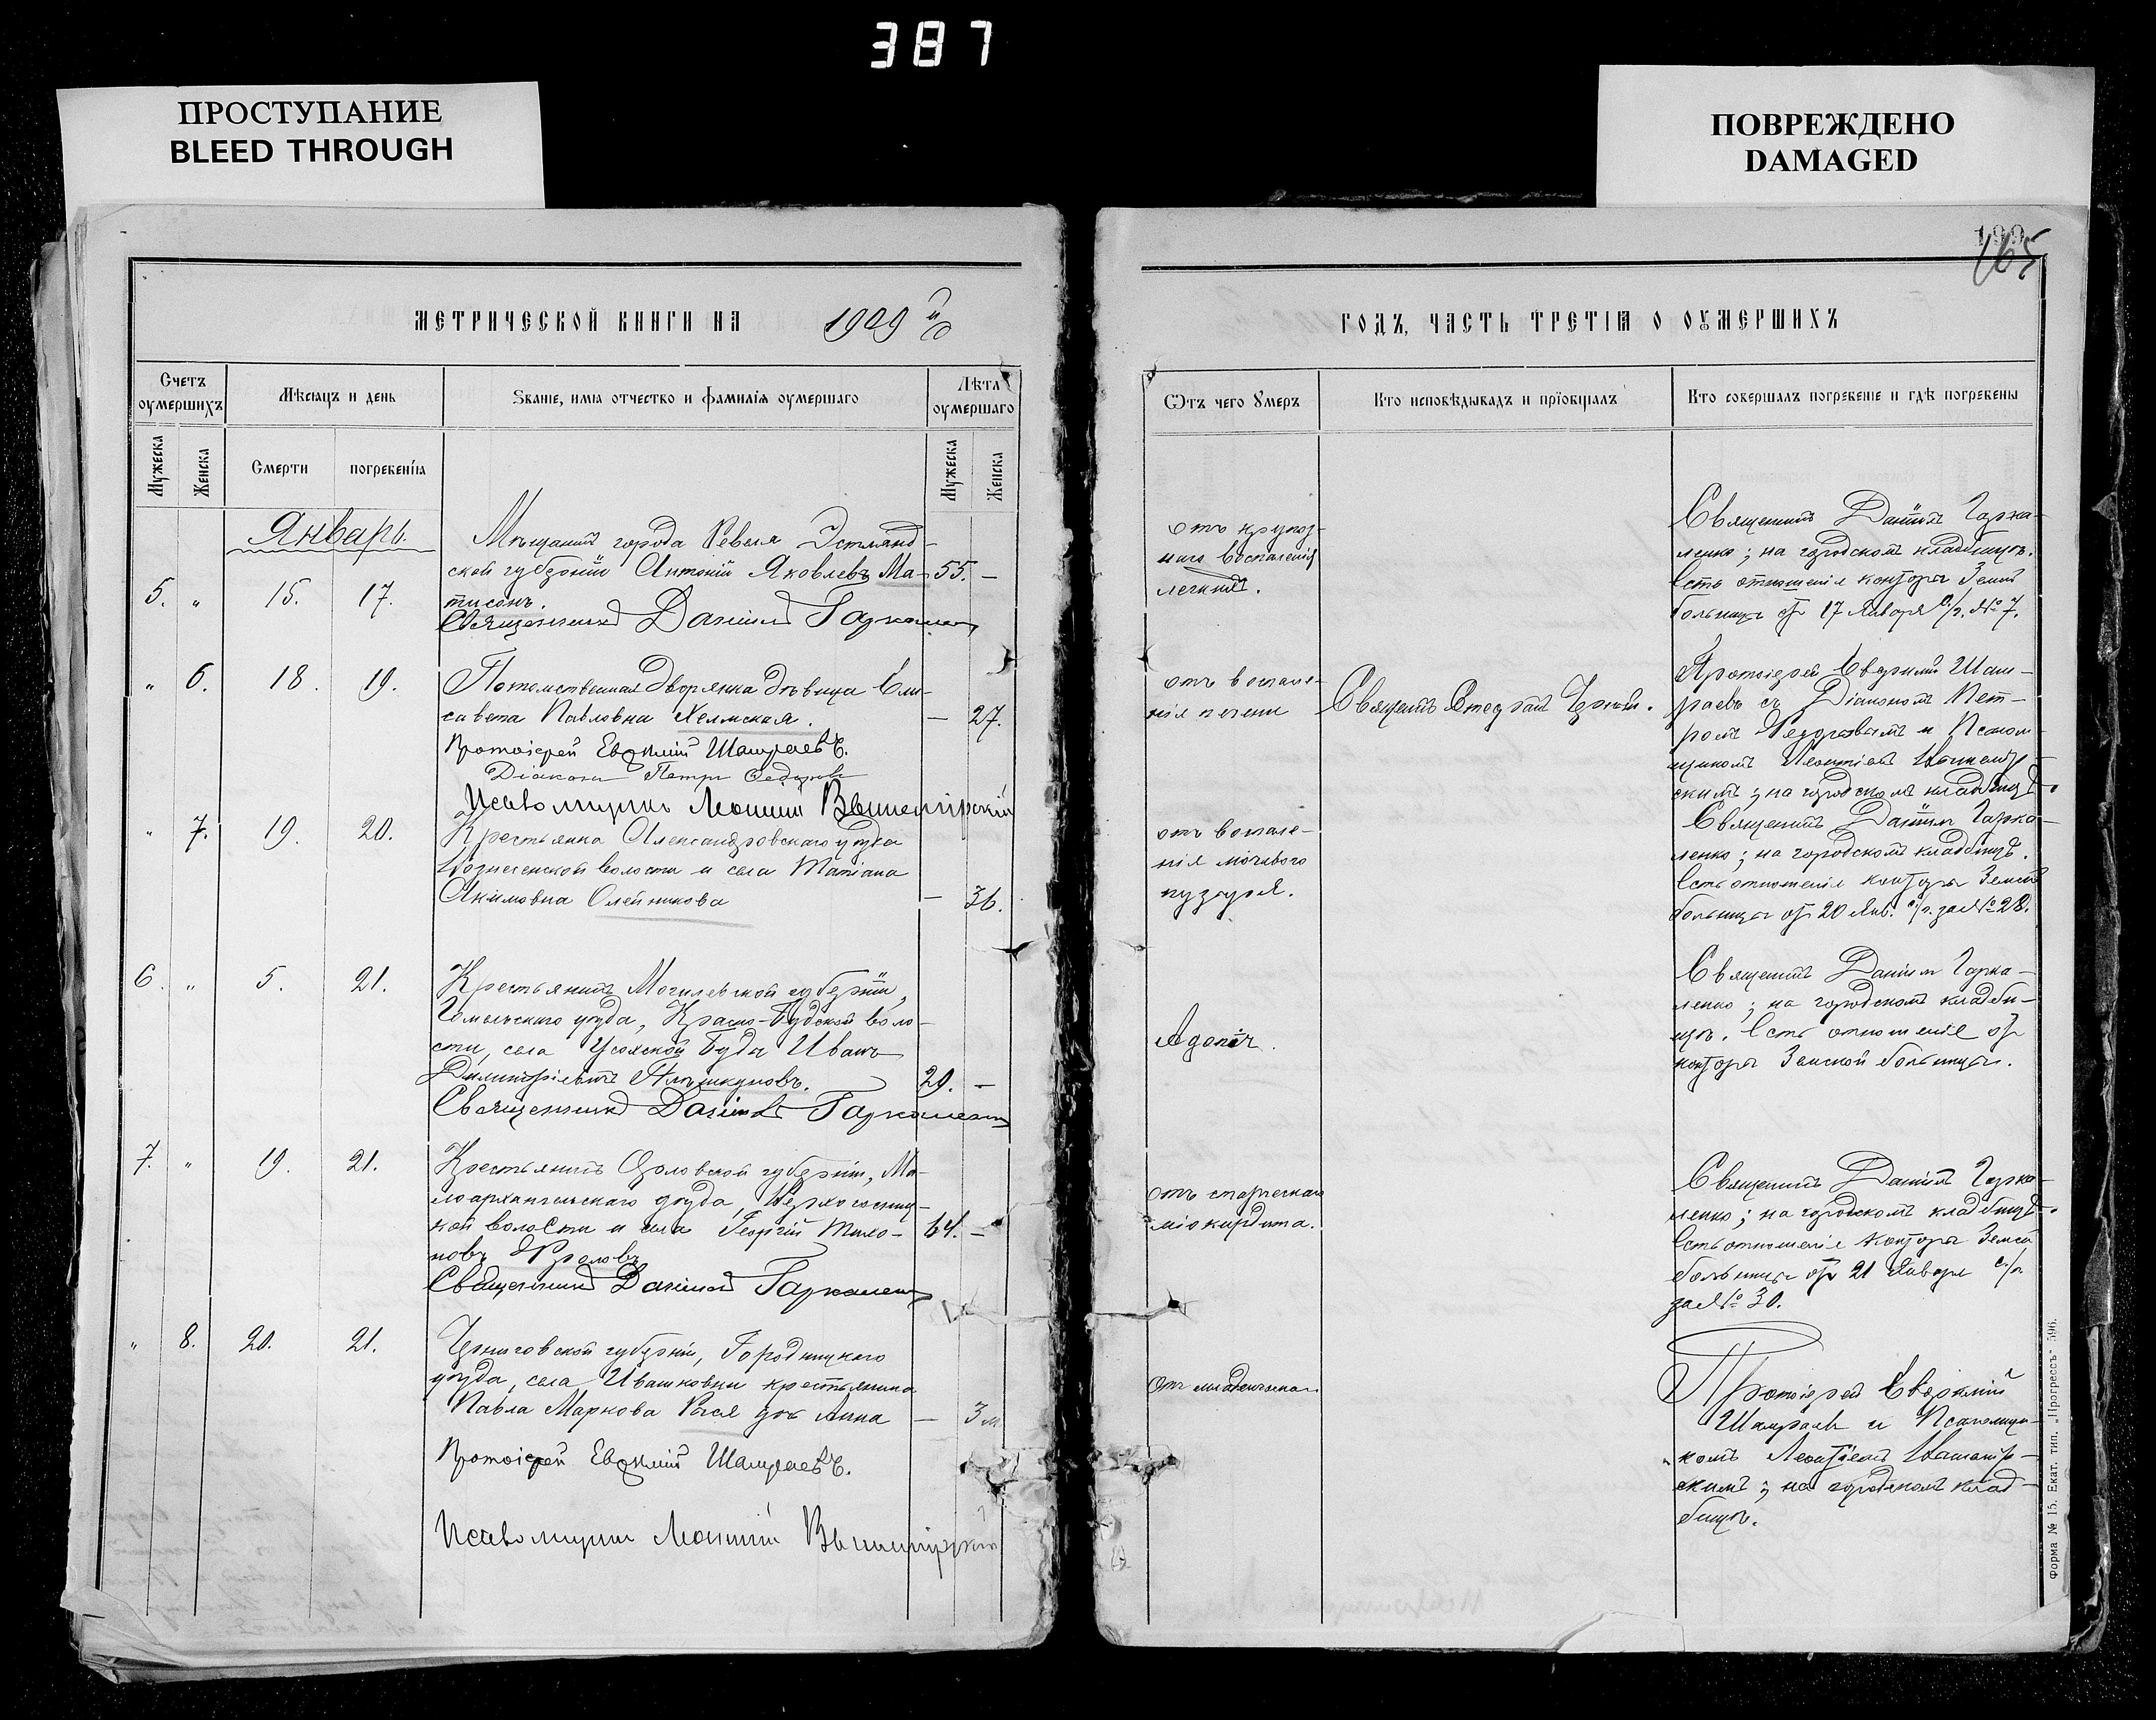 387
ПРОСТУПАНИЕ
BLEED THROUGH
ПОВРЕЖДЕНО
DAMAGED
165
МЕТРИЧЕСКОЙ КНИГИ НА 1909 й
ГОДЪ, ЧАСТЬ ТРЕТІЯ О ОУМЕРШИХЪ
Счетъ оумершихъ
Мѣсяцъ и день
Званіе, имя отчество и фамилія оумершаго
Лѣта оумершаго
Мужеска
Женска
Смерти
погребенія
Мужеска
Женска
Отъ чего умеръ
Кто исповѣдывалъ и пріобщалъ
Кто совершалъ погребеніе и гдѣ погребены
Январь.
5. „ 15. 17.
Мѣщанинъ города Ревеля Эстлянд-
ской губерніи Антоній Яковлевъ Ма- 55. –
тисонъ.
Священникъ Даніилъ Гаркаленко
отъ крупоз-
наго воспаленія
легкихъ.
Священникъ Даніилъ Гарка-
ленко; на городскомъ кладбищѣ.
Есть отношеніе конторы Земск.
больницы отъ 17 Января с/г. № 7.
„ 6. 18. 19.
Потомственная Дворянка дѣвица Ели-
савета Павловна Хелмская. – 27.
Протоіерей Евѳимій Шамраевъ.
Діаконъ Петръ Федоровъ
Псаломщикъ Леонтій
отъ воспале-
нія печени
Священникъ
Протоіерей Евѳимій Шам-
раевъ съ Діакономъ Пет-
ромъ Федоровымъ и Псалом-
щикомъ Леонтіемъ
скимъ; на городскомъ кладбищѣ.
„ 7. 19. 20.
Крестьянка Александровскаго уѣзда
Вознесенской волости и села Татіана
Акимовна Олейникова – 36.
отъ воспале-
нія мочевого
пузыря.
Священникъ Даніилъ Гарка-
ленко; на городскомъ кладбищѣ.
Есть отношеніе конторы Земской
больницы отъ 20 Янв. с/г. за № 28.
6. „ 5. 21.
Крестьянинъ Могилевской губерніи,
Гомельскаго уѣзда, Красно-Будской воло-
сти, села Буда Иванъ
Димитріевичъ 29. –
Священникъ Даніилъ Гаркаленко
Священникъ Даніилъ Гарка-
ленко; на городскомъ кладби-
щѣ. Есть отношеніе отъ
конторы Земской больницы.
7. „ 19. 21.
Крестьянинъ Орловской губерніи, Ма-
лоархангельскаго уѣзда,
кой волости и села Георгій Тихо- 64. –
новъ Фроловъ
Священникъ Даніилъ Гаркаленко
отъ старческаго
міокардита.
Священникъ Даніилъ Гарка-
ленко; на городскомъ кладбищѣ.
Есть отношеніе конторы Земск.
больницы отъ 21 Января с/г
за № 30.
„ 8. 20. 21.
Черниговской губерніи, Городницкаго
уѣзда, села Ивашковки крестьянина
Павла Маркова дочь Анна – 3 м
Протоіерей Евѳимій Шамраевъ.
Псаломщикъ Леонтій
Протоіерей Евѳимій
Шамраевъ и Псаломщи-
комъ Леонтіемъ
скимъ; на городскомъ клад-
бищѣ.
Форма № 15. Екат. тип. „Прогрессъ“ 596.